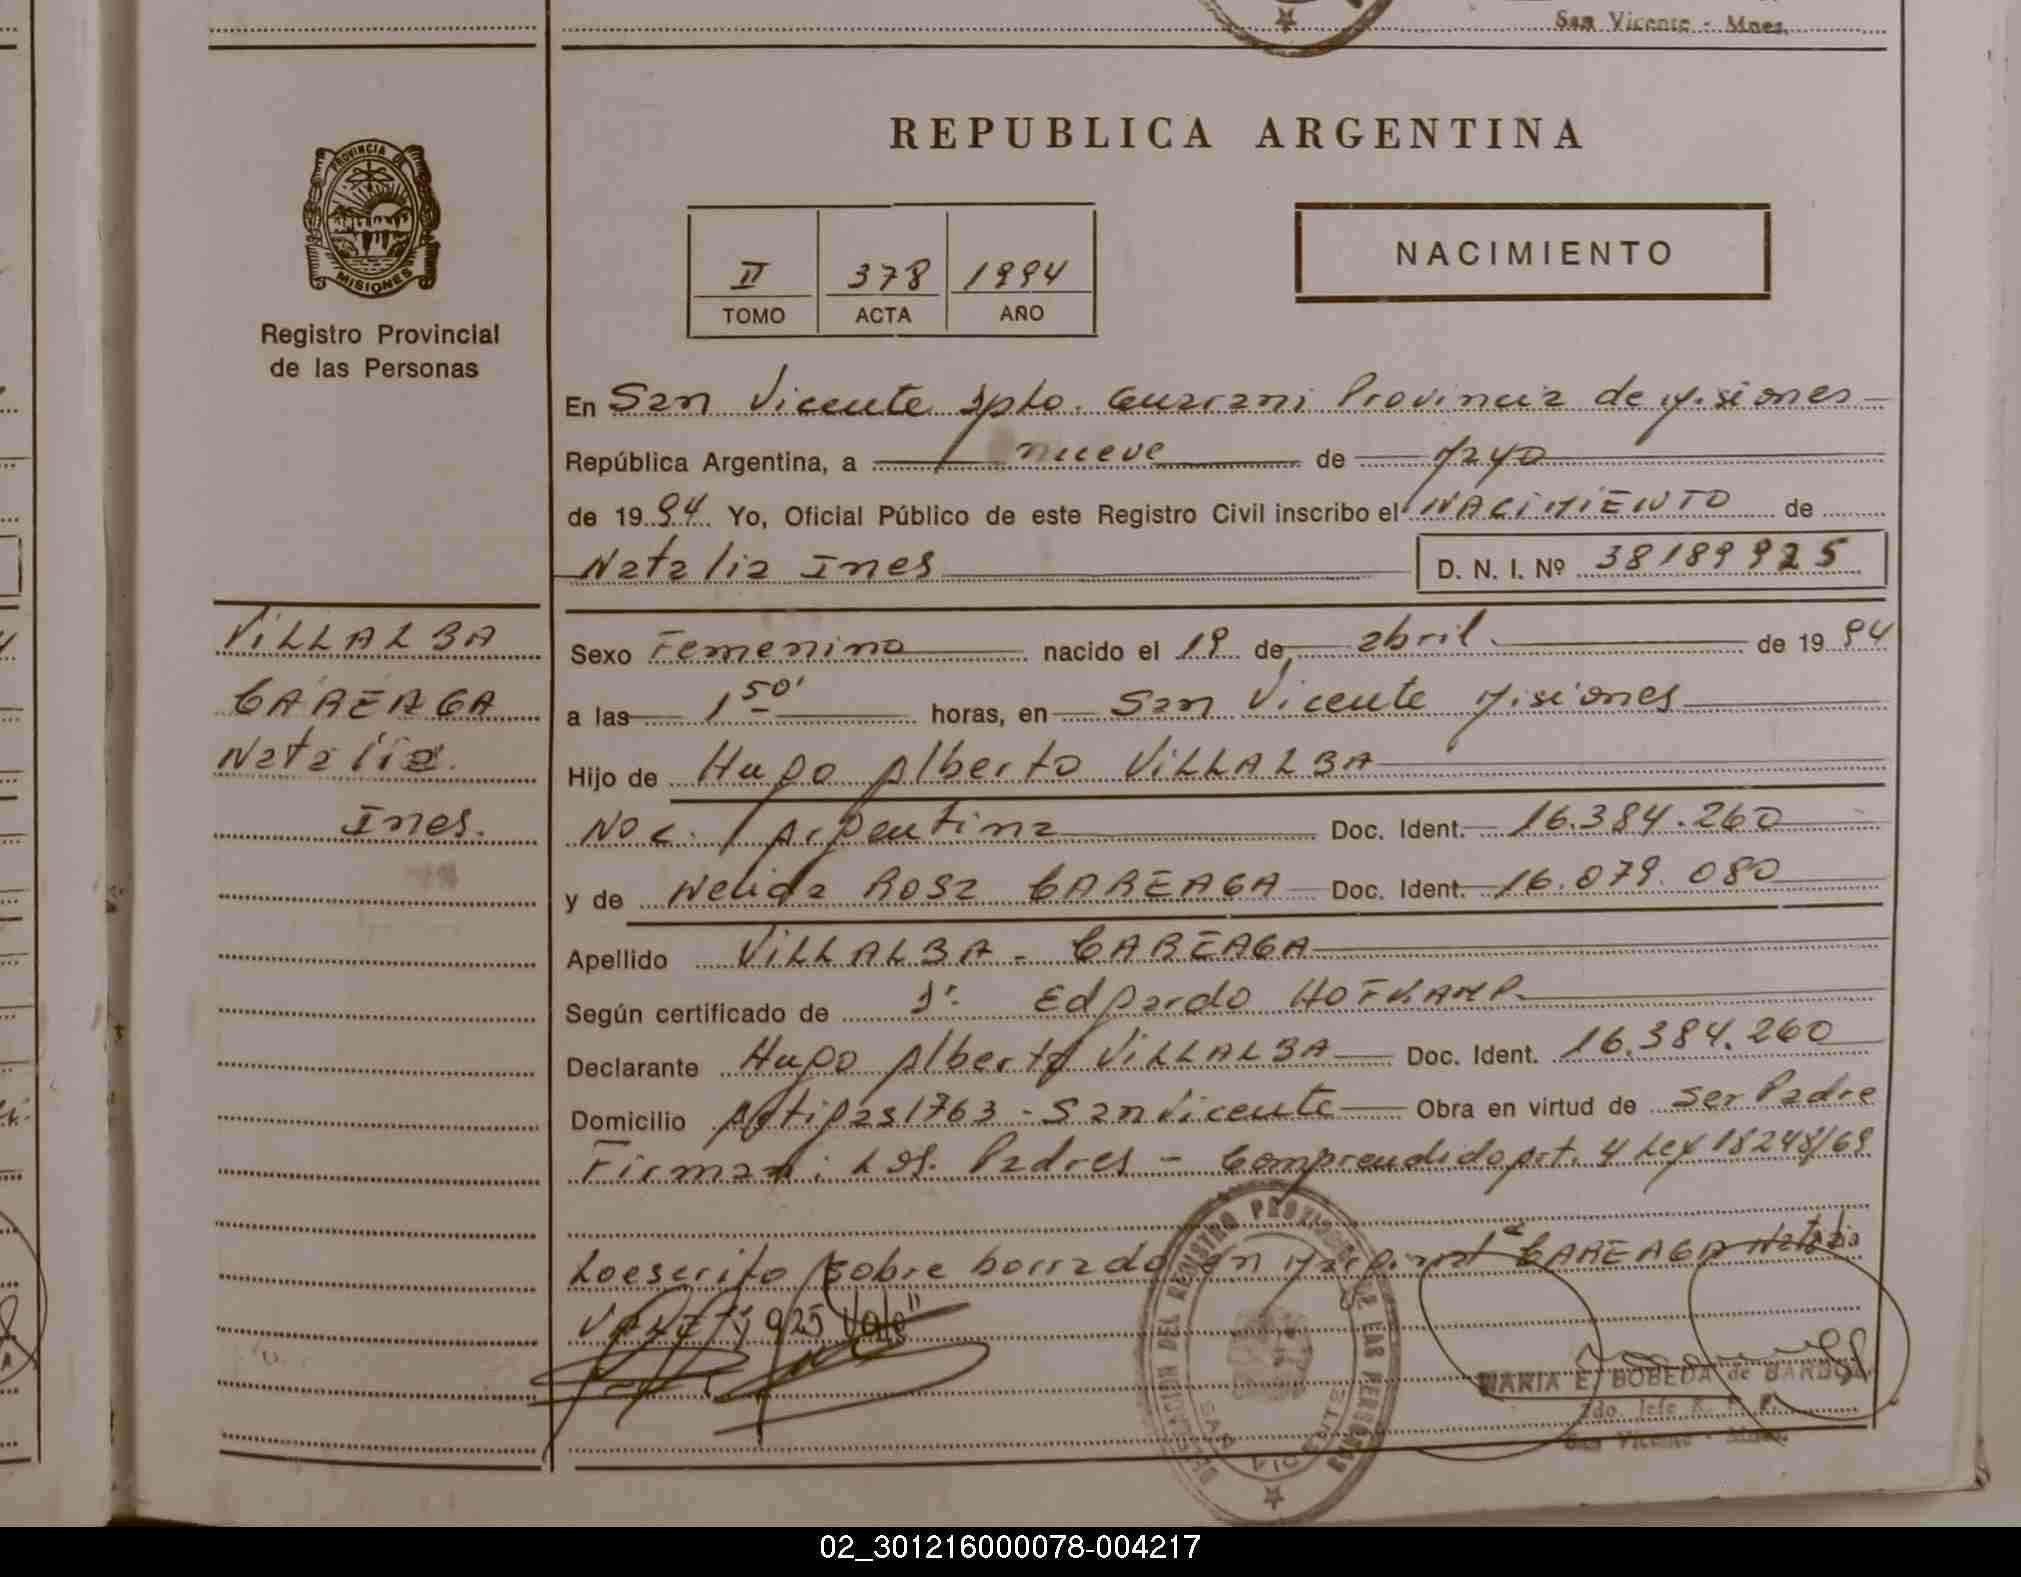 San Vicente - Mnes.
REPUBLICA ARGENTINA
PROVINCIA DE
MISIONES
Registro Provincial
de las Personas
II 378 1994
TOMO ACTA AÑO
NACIMIENTO
En San Vicente Dpto. Guarani Provincia de Misiones
República Argentina, a nueve de Mayo
de 1994 Yo, Oficial Público de este Registro Civil inscribo el NACIMIENTO de
Natalia Ines D. N. I. Nº 38189925
VILLALBA
CAREAGA
Natalia
Ines.
Sexo Femenino nacido el 19 de abril de 1994
a las 1 50' horas, en San Vicente Misiones
Hijo de Hugo Alberto VILLALBA
Nac. Argentina Doc. Ident. 16.384.260
y de Nelida Rosa CAREAGA Doc. Ident. 16.079.080
Apellido VILLALBA - CAREAGA
Según certificado de Dr. Edgardo HOFKAMP.
Declarante Hugo Alberto VILLALBA Doc. Ident. 16.384.260
Domicilio 1763 - San Vicente Obra en virtud de ser Padre
Firman: Los Padres - Comprendido Art. 4 Ley 18248/69
Lo escrito sobre borrado en CAREAGA Natalia
925 Vale"
REGISTRO PROVINCIAL DE LAS PERSONAS
SAN VICENTE
MARIA E. BOBEDA de BARBOZA
2do. Jefe R. P. P.
San Vicente - Mnes.
02_301216000078-004217